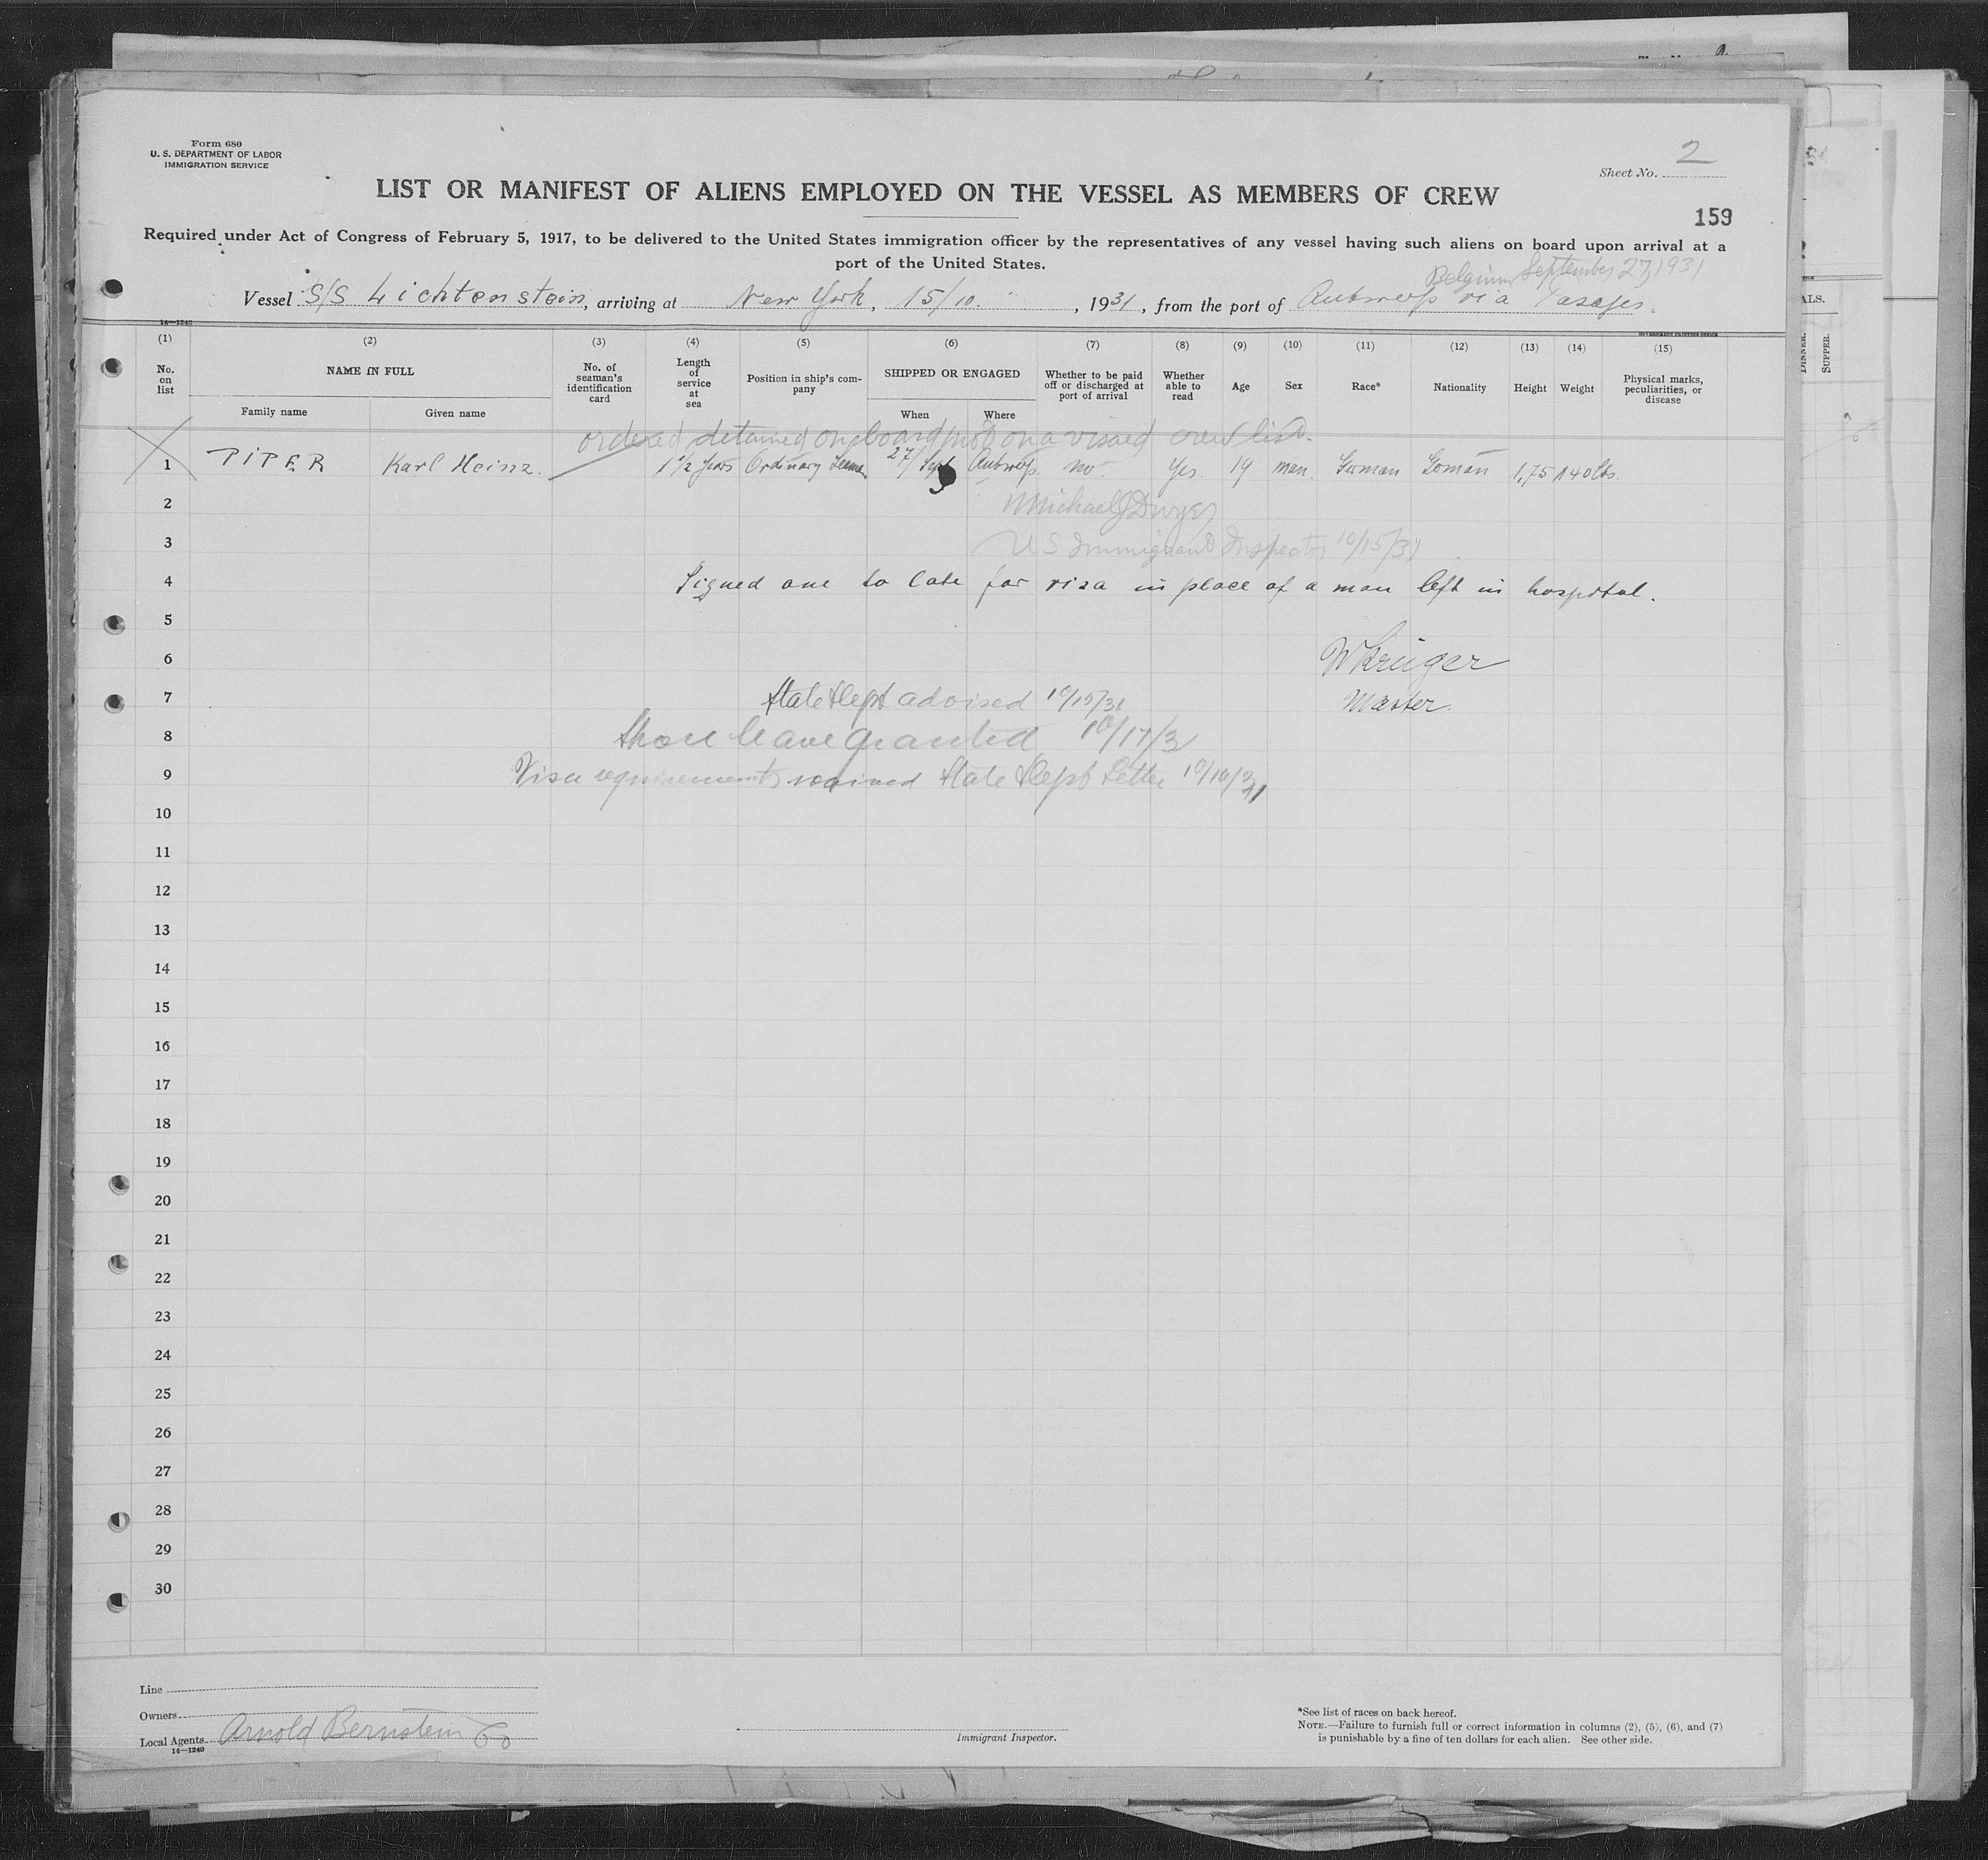 Form 680
U. S. DEPARTMENT OF LABOR
IMMIGRATION SERVICE
Sheet No. 2
LIST OR MANIFEST OF ALIENS EMPLOYED ON THE VESSEL AS MEMBERS OF CREW
159
Required under Act of Congress of February 5, 1917, to be delivered to the United States immigration officer by the representatives of any vessel having such aliens on board upon arrival at a
port of the United States.
Belgium September 27, 1931
Vessel S/S Lichtenstein, arriving at New York, 15/10., 1931, from the port of Antwerp via Pasajes.
14—1240
GOVERNMENT PRINTING OFFICE
(1) (2) (3) (4) (5) (6) (7) (8) (9) (10) (11) (12) (13) (14) (15)
No. on list NAME IN FULL Family name Given name No. of seaman's identification card Length of service at sea Position in ship's company SHIPPED OR ENGAGED When Where Whether to be paid off or discharged at port of arrival Whether able to read Age Sex Race* Nationality Height Weight Physical marks, peculiarities, or disease
ordered detained on board not on a visaed crew list.
1 PIPER Karl Heinz. 1 1/2 years Ordinary Seam. 27/Sept Antwerp. no. Yes. 19 man. German German 1,75 140 lbs.
2 Michael J Dwyer
3 US Immigrant Inspector 10/15/31
4 Signed one to late for visa in place of a man left in hospital.
5
6 W Krüger
7 State Dept advised 10/15/31 Master.
8 Shore leave granted 10/17/31
9 Visa requirements waived State Dept Letter
10
11
12
13
14
15
16
17
18
19
20
21
22
23
24
25
26
27
28
29
30
Line
Owners
Local Agents Arnold Bernstein Co
14—1240
Immigrant Inspector.
*See list of races on back hereof.
NOTE.—Failure to furnish full or correct information in columns (2), (5), (6), and (7)
is punishable by a fine of ten dollars for each alien. See other side.
ALS.
DINNER.
SUPPER.